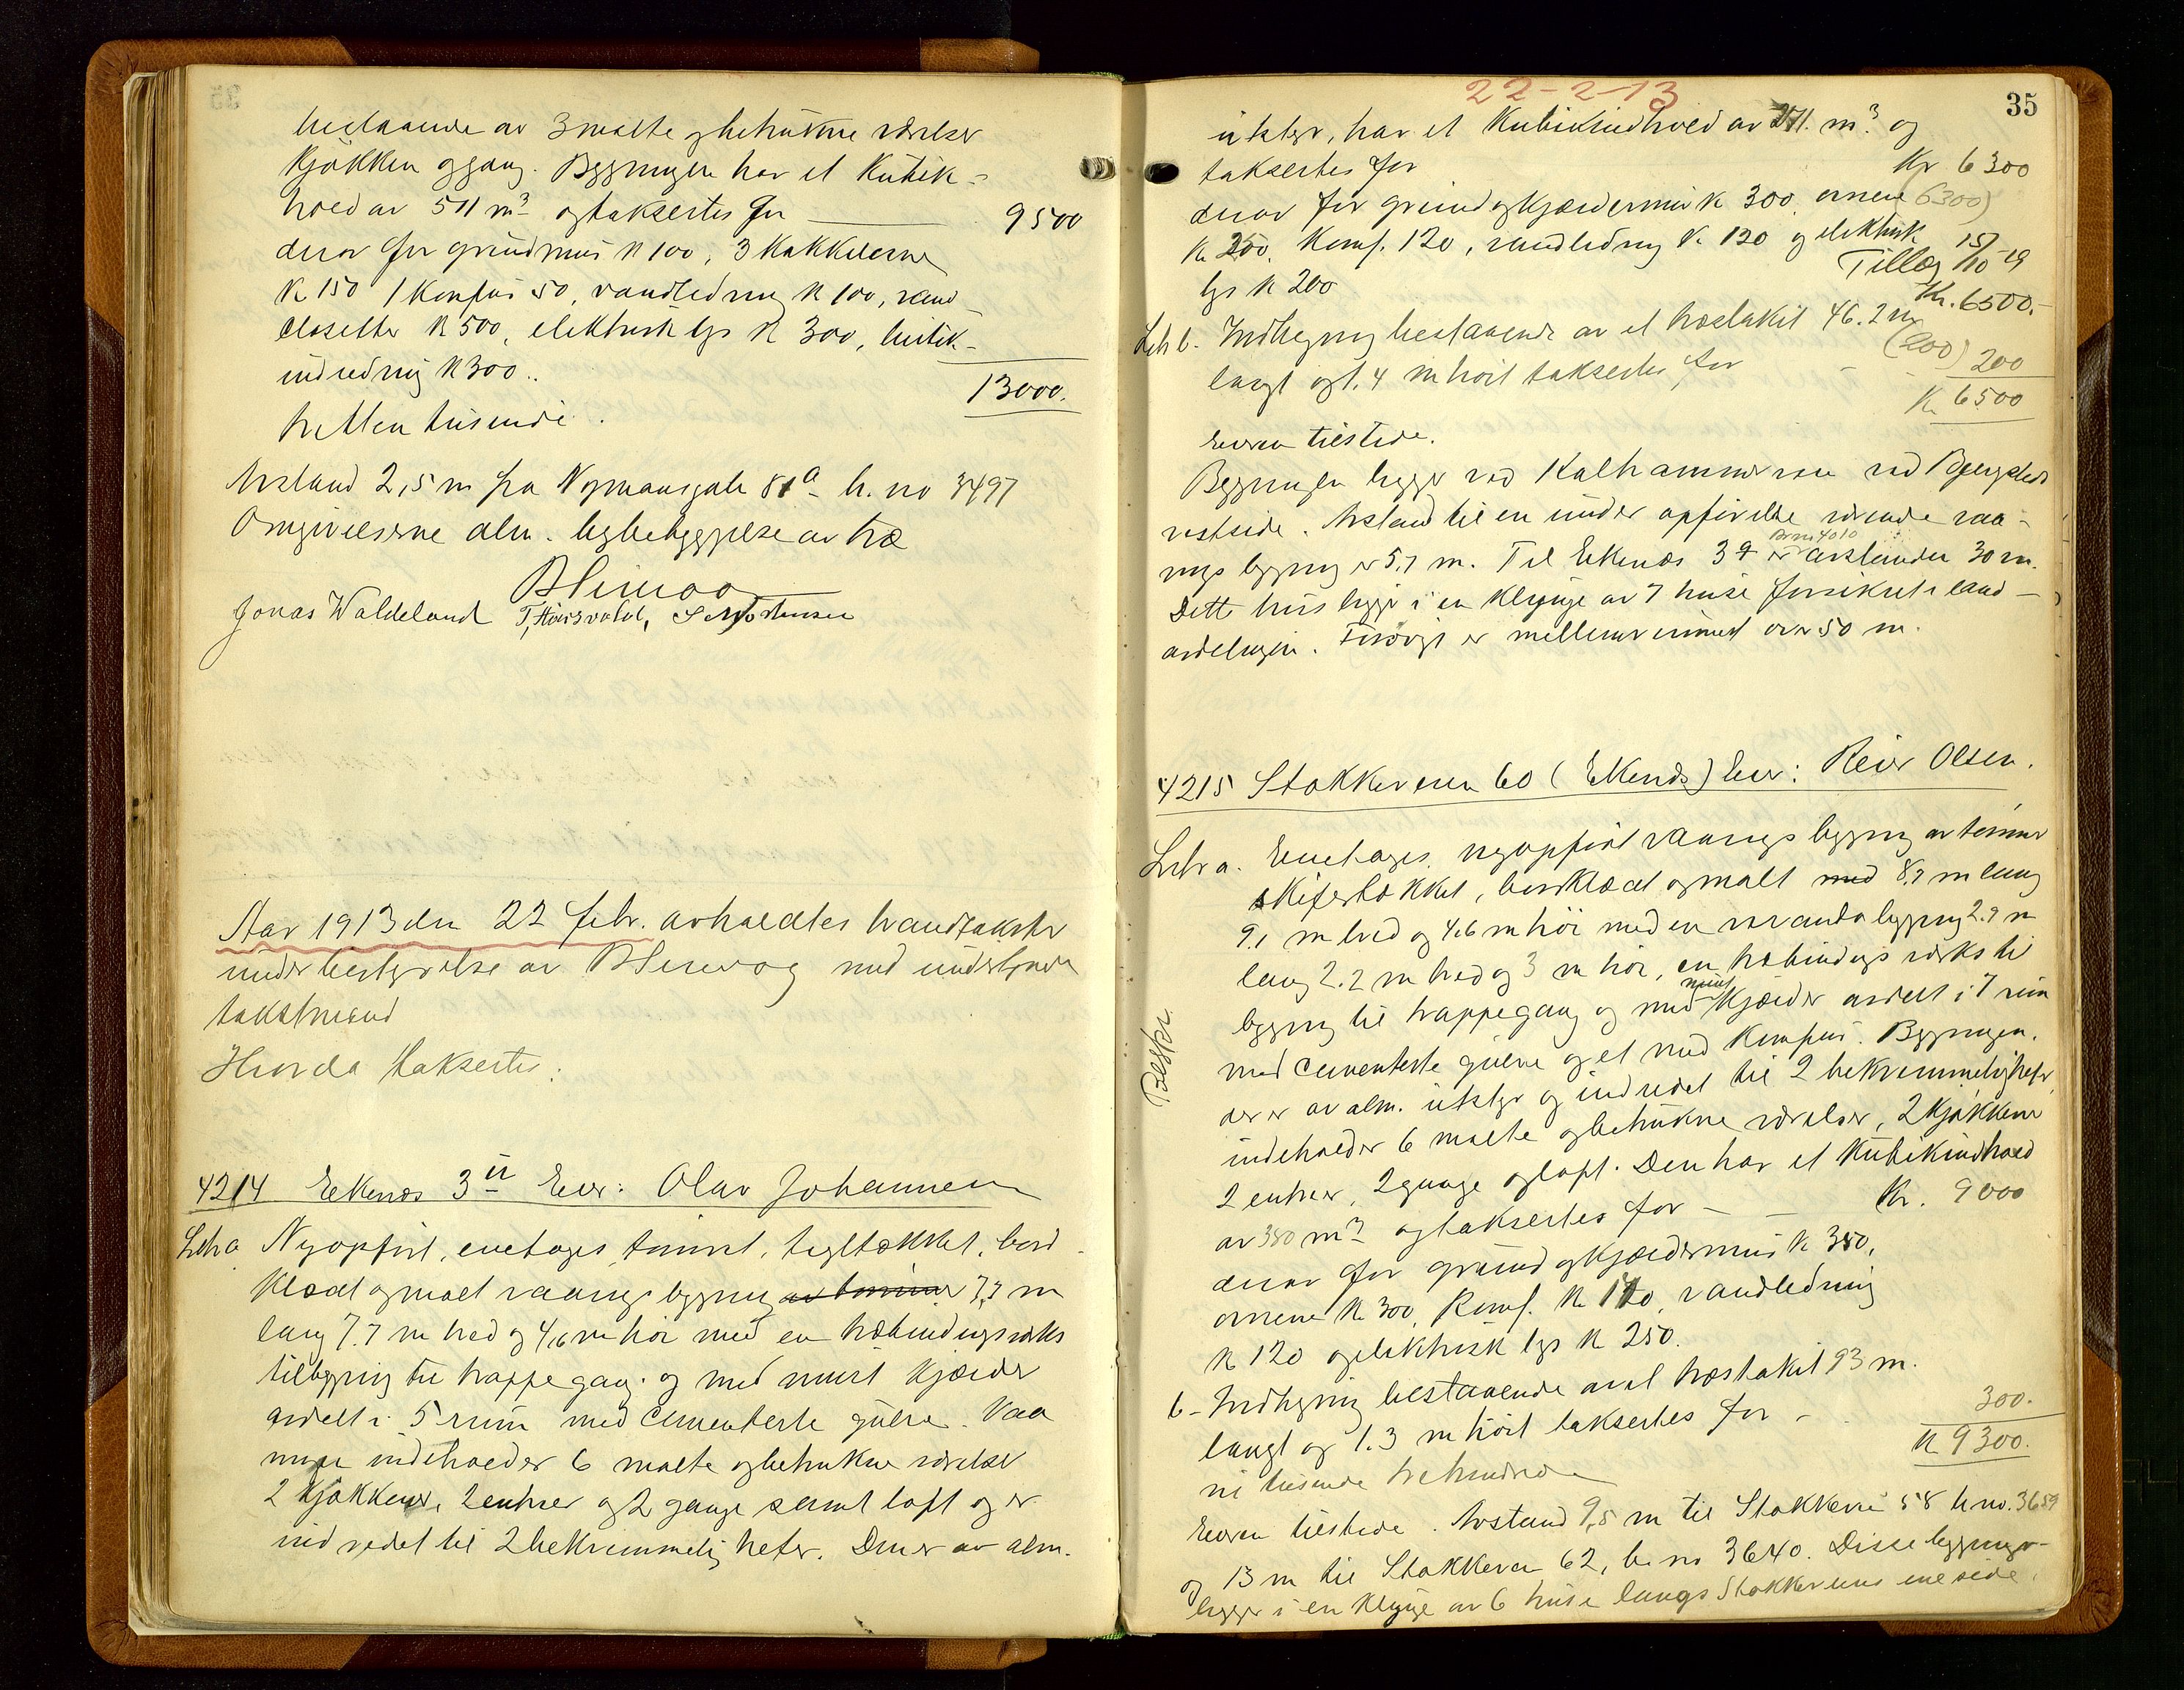 bestaaende av 3 malte og betrukne værelser
kjøkken og gang. Bygningen har et kubik-
hold av 511 m³ og taksertes for 9500
derav for grundmur k 100, 3 kakkelovne
k 150 1 komfur 50, vandledning k 100, vand
closetter k 500, elektrisk lys k 300, butik-
indredning k 300.. 13000.
tretten tusende.
Avstand 2,5 m fra Nymansgate 81a br. no 3497
Omgivelserne alm. bybebyggelse av træ
Jonas Waldeland T. Hausvold, S. Mortensen
Aar 1913 den 22 febr. avholdtes brandtakster
under bestyrelse av med undertegnede
takstmænd
Hvorda taksertes:
4214 Eekenæs 3 II Eier: Olav Johannesen
Litr a Nyopført, enetages tømret, tegltækket, bord-
klædt og malt vaaningsbygning av tømmer 7,7 m
lang 7.7 m bred og 4,6 m høi med en træbindingsverks
tilbygning til trappegang og med muret kjælder
avdelt i 5 rum med cementerte gulve. Vaa
ningen indeholder 6 malte og betrukne værelser
2 kjøkkener, 2 entreer og 2 gange samt loft og er
indredet til 2 bekvemmeligheter. Den er av alm.
35
22-2-13
utstyr, har et kubikindhold av 271. m³ og
taksertes for Kr 6300
derav for grund og kjældermur k 300, ovnene (6300)
k 250. Komf. 120, vandledning k. 120 og elektrisk
lys k 200
Tillæg 15/10-19
Kr. 6500.-
Litr b. Indhegning bestaaende av et træstakit 46.2 m
langt og 1.4 m høit taksertes for (200) 200
K 6500
Eieren tilstede.
Bygningen ligger ved Kalhammerveien ved Bjergsteds
vestside. Avstand til en under opførelse værende vaa-
nings bygning er 5.7 m. Til Eekenæs 3 a br no 4010 er avstanden 30 m.
Dette hus ligger i en klynge av 7 huse forsikret i land-
avdelingen. Forøvrigt er mellemrummet over 50 m.
4215 Stokkaveien 60 (Ekenæs) Eier: Reier Olsen.
Beskr.
Litr a. Enetages nyopført vaanings bygning av tømmer
skifertækket, bordklædt og malt med 8,7 m lang
9.1 m bred og 4,6 m høi med en verandabygning 2.9 m
lang 2.2 m bred og 3 m høi, en træbindings verks til
bygning til trappegang og med muret kjælder avdelt i 7 rum
med cementerte gulve og et med komfur. Bygningen,
der er av alm. utstyr og indredet til 2 bekvemmeligheter,
indeholder 6 malte og betrukne værelser, 2 kjøkkener
2 entreer, 2 gange og loft. Den har et kubikindhold
av 380 m³ og taksertes for Kr. 9000
derav for grund og kjældermur k 350,
ovnene k 300, Komf. k 170, vandledning
k 120 og elektrisk lys k 250.
b- Indhegning bestaaende av et træstakit 93 m.
langt og 1.3 m høit taksertes for 300.
k 9300.
ni tusende trehundrede
Eieren tilstede. Avstand 9,5 m til Stokkavei 58 br no. 3659
og 13 m til Stokkaveien 62, br. no 3640. Disse bygninger
ligger i en klynge av 6 huse langs Stokkaveiens ene side.